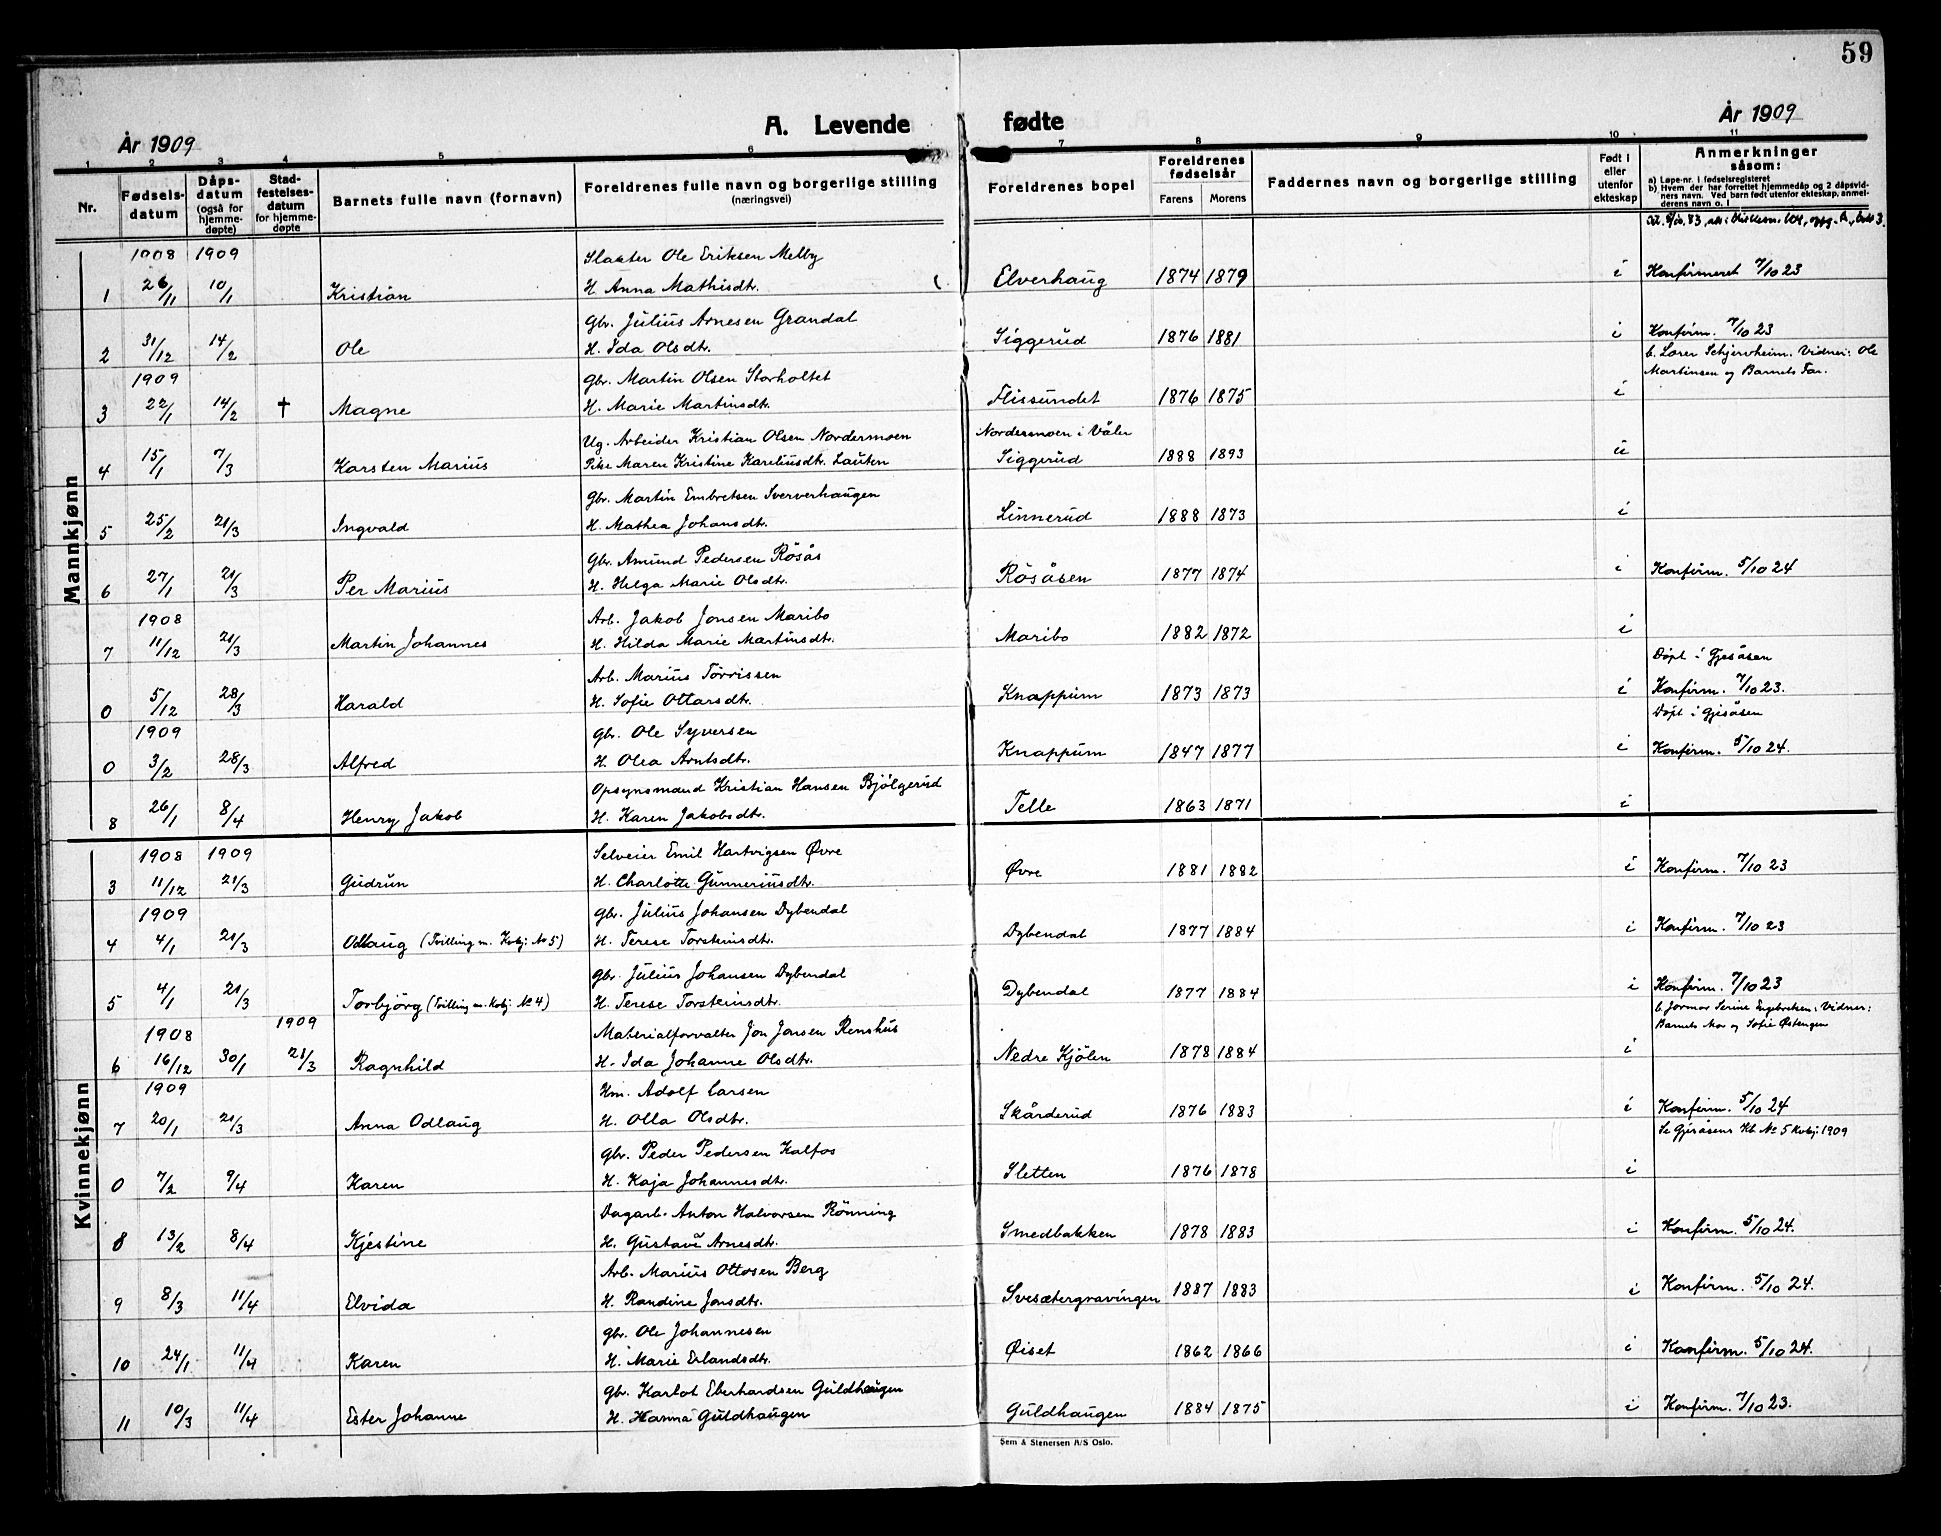 59
År 1909
A. Levende fødte
År 1909
1 2 3 4 5 6 7 8 9 10 11
Nr.
Fødsels-
datum
Dåps-
datum
(også for
hjemme-
døpte)
Stad-
festelses-
datum
for hjemme-
døpte
Barnets fulle navn (fornavn)
Foreldrenes fulle navn og borgerlige stilling
(næringsvei)
Foreldrenes bopel
Foreldrenes
fødselsår
Farens Morens
Faddernes navn og borgerlige stilling
Født i
eller
utenfor
ekteskap
Anmerkninger
såsom:
a) Løpe-nr. i fødselsregisteret
b) Hvem der har forrettet hjemmedåp og 2 dåpsvid-
ners navn. Ved barn født utenfor ekteskap, anmel-
derens navn o. l
Mannkjønn
1908 1909 Slakter Ole Eriksen Melby
1 26/11 10/1 Kristian H. Anna Mathisdtr. Elverhaug 1874 1879 i Konfirmeret 7/10 23
Gbr. Julius Arnesen Grandal
2 31/12 14/2 Ole H. Ida Olsdtr. Siggerud 1876 1881 i Konfirm. 7/10 23
b. Lærer Schjervheim. Vidner: Ole
Martinsen og Barnets Far.
1909 Gbr. Martin Olsen Storholtet
3 22/1 14/2 † Magne H. Marie Martinsdtr. Flissundet 1876 1875 i
Ug. Arbeider Kristian Olsen Nordermoen Nordermoen i Våler
4 15/1 7/3 Karsten Marius Pike Maren Kristine Kareliusdtr. Lauten Siggerud 1888 1893 u
Gbr. Martin Embretsen Sververhaugen
5 25/2 21/3 Ingvald H. Mathea Johansdtr. Linnerud 1888 1873 i
Gbr. Amund Pedersen Rösås
6 27/1 21/3 Per Marius H. Helga Marie Olsdtr. Rösåsen 1877 1874 i Konfirm. 5/10 24
1908 Arb. Jakob Jonsen Maribo
7 11/12 21/3 Martin Johannes H. Hilda Marie Martinsdtr. Maribo 1882 1872 i
Arb. Marius Torrissen Döpt i Gjesåsen
0 5/12 28/3 Harald H. Sofie Ottarsdtr. Knappum 1873 1873 i Konfirm. 7/10 23.
1909 Gbr. Ole Syversen Döpt i Gjesåsen
0 3/2 28/3 Alfred H. Olea Arntsdtr. Knappum 1847 1877 i Konfirm. 5/10 24.
Opsynsmand Kristian Hansen Bjölgerud
8 26/1 8/4 Henry Jakob H. Karen Jakobsdtr. Telle 1863 1871 i
Kvinnekjønn
1908 1909 Selveier Emil Hartvigsen Øvre
3 11/12 21/3 Gudrun H. Charlotte Gunneriusdtr. Øvre 1881 1882 i Konfirm. 7/10 23
1909 Gbr. Julius Johansen Dybendal
4 4/1 21/3 Odlaug (Tvilling m. Kvkj. No 5) H. Terese Torsteinsdtr. Dybendal 1877 1884 i Konfirm. 7/10 23
Gbr. Julius Johansen Dybendal
5 4/1 21/3 Torbjörg (Tvilling m. Kvkj. No 4) H. Terese Torsteinsdtr. Dybendal 1877 1884 i Konfirm. 7/10 23
b. Jormor Serine Engebretsen. Vidner:
Barnets Mor og Sofie Østengen
1908 1909 Materialforvalter Jon Jonsen Renshus
6 16/12 30/1 21/3 Ragnhild H. Ida Johanne Olsdtr. Nedre Kjölen 1878 1884 i
1909 Km. Adolf Larsen
7 20/1 21/3 Anna Odlaug H. Olla Olsdtr. Skårderud 1876 1883 i Konfirm. 5/10 24
Gbr. Peder Pedersen Kalfos Se Gjesåsens Kb No 5 Kvkj. 1909
0 7/2 9/4 Karen H. Kaja Johannesdtr. Sletten 1876 1878 i
Dagarb. Anton Halvorsen Rönning
8 13/2 8/4 Kjestine H. Gustava Arnesdtr. Smedbakken 1878 1883 i Konfirm. 5/10 24.
Arb. Marius Ottosen Berg
9 8/3 11/4 Elvida H. Randine Jonsdtr. Svesætergravingen 1887 1883 i Konfirm. 5/10 24.
Gbr. Ole Johannesen
10 24/1 11/4 Karen H. Marie Erlandsdtr. Øiset 1862 1866 i Konfirm. 5/10 24.
Gbr. Karlot Eberhardsen Guldhaugen
11 10/3 11/4 Ester Johanne H. Hanna Guldhaugen Guldhaugen 1884 1875 i Konfirm. 7/10 23.
Sem & Stenersen A/S Oslo.